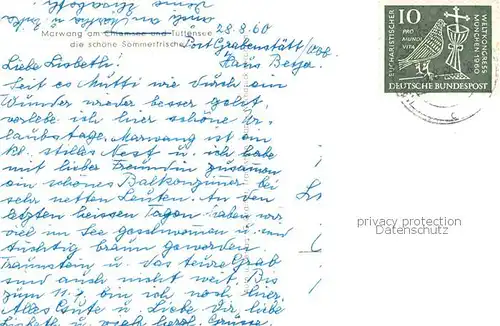 Marwang am Chiemsee und Tüttensee
die schöne Sommerfrische
28.8.60
Post Grabenstätt/Obb.
Haus Beyer.
Liebe Lisbeth!
Seit es Mutti wie durch ein
Wunder wieder besser geht,
verlebe ich hier schöne Ur-
laubstage. Marwang ist ein
kl. stilles Nest u. ich habe
mit lieber Freundin zusammen
ein schönes Balkonzimmer bei
sehr netten Leuten. An den
letzten heissen Tagen haben wir
viel im See geschwommen u. sind
tüchtig braun geworden.
Traunstein u. das teure Grab
sind auch nicht weit. Bis
zum 11.9. bin ich noch hier.
Alles Gute u. Liebe Dir liebe
Lisbeth u. recht herzl. Grüsse
10
PRO
MUNDI
VITA
EUCHARISTISCHER
WELTKONGRESS
MÜNCHEN 1960
DEUTSCHE BUNDESPOST
privacy protection
Datenschutz